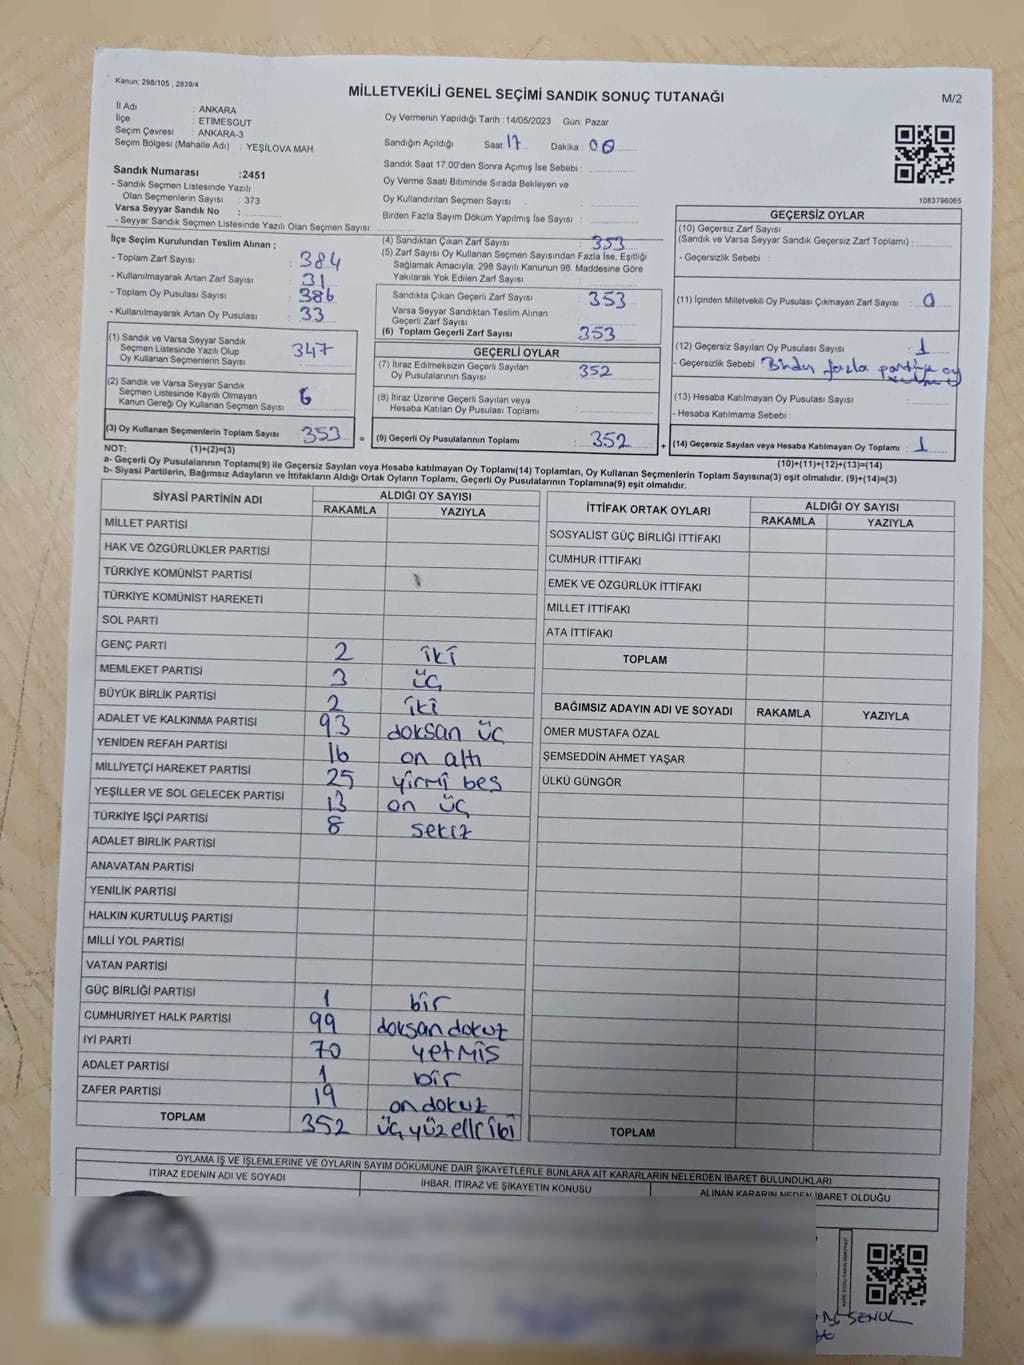 Kanun: 298/105 , 2839/4
MİLLETVEKİLİ GENEL SEÇİMİ SANDIK SONUÇ TUTANAĞI
M/2
İl Adı : ANKARA
İlçe : ETİMESGUT
Seçim Çevresi : ANKARA-3
Seçim Bölgesi (Mahalle Adı) : YEŞİLOVA MAH.
Oy Vermenin Yapıldığı Tarih : 14/05/2023 Gün: Pazar
Sandığın Açıldığı Saat: 17 Dakika : 00
Sandık Saat 17:00'den Sonra Açımış İse Sebebi :
Oy Verme Saati Bitiminde Sırada Bekleyen ve
Oy Kullandırılan Seçmen Sayısı :
Birden Fazla Sayım Döküm Yapılmış İse Sayısı :
1083796065
Sandık Numarası : 2451
- Sandık Seçmen Listesinde Yazılı
Olan Seçmenlerin Sayısı : 373
Varsa Seyyar Sandık No :
- Seyyar Sandık Seçmen Listesinde Yazılı Olan Seçmen Sayısı:
İlçe Seçim Kurulundan Teslim Alınan ;
- Toplam Zarf Sayısı : 384
- Kullanılmayarak Artan Zarf Sayısı : 31
- Toplam Oy Pusulası Sayısı : 386
- Kullanılmayarak Artan Oy Pusulası : 33
(1) Sandık ve Varsa Seyyar Sandık
Seçmen Listesinde Yazılı Olup
Oy Kullanan Seçmenlerin Sayısı : 347
(2) Sandık ve Varsa Seyyar Sandık
Seçmen Listesinde Kayıtlı Olmayan
Kanun Gereği Oy Kullanan Seçmen Sayısı : 6
(3) Oy Kullanan Seçmenlerin Toplam Sayısı : 353
(4) Sandıktan Çıkan Zarf Sayısı : 353
(5) Zarf Sayısı Oy Kullanan Seçmen Sayısından Fazla İse, Eşitliği
Sağlamak Amacıyla; 298 Sayılı Kanunun 98. Maddesine Göre
Yakılarak Yok Edilen Zarf Sayısı :
Sandıkta Çıkan Geçerli Zarf Sayısı : 353
Varsa Seyyar Sandıktan Teslim Alınan
Geçerli Zarf Sayısı :
(6) Toplam Geçerli Zarf Sayısı : 353
GEÇERLİ OYLAR
(7) İtiraz Edilmeksizin Geçerli Sayılan
Oy Pusulalarının Sayısı : 352
(8) İtiraz Üzerine Geçerli Sayılan veya
Hesaba Katılan Oy Pusulası Toplamı :
= (9) Geçerli Oy Pusulalarının Toplamı : 352 +
GEÇERSİZ OYLAR
(10) Geçersiz Zarf Sayısı
(Sandık ve Varsa Seyyar Sandık Geçersiz Zarf Toplamı) :
- Geçersizlik Sebebi :
(11) İçinden Milletvekili Oy Pusulası Çıkmayan Zarf Sayısı : 0
(12) Geçersiz Sayılan Oy Pusulası Sayısı : 1
- Geçersizlik Sebebi : Birden fazla partiye oy
(13) Hesaba Katılmayan Oy Pusulası Sayısı :
- Hesaba Katılmama Sebebi :
(14) Geçersiz Sayılan veya Hesaba Katılmayan Oy Toplamı : 1
NOT: (1)+(2)=(3)
(10)+(11)+(12)+(13)=(14)
a- Geçerli Oy Pusulalarının Toplamı(9) ile Geçersiz Sayılan veya Hesaba katılmayan Oy Toplamı(14) Toplamları, Oy Kullanan Seçmenlerin Toplam Sayısına(3) eşit olmalıdır. (9)+(14)=(3)
b- Siyasi Partilerin, Bağımsız Adayların ve İttifakların Aldığı Ortak Oyların Toplamı, Geçerli Oy Pusulalarının Toplamına(9) eşit olmalıdır.
SİYASİ PARTİNİN ADI ALDIĞI OY SAYISI
RAKAMLA YAZIYLA
MİLLET PARTİSİ
HAK VE ÖZGÜRLÜKLER PARTİSİ
TÜRKİYE KOMÜNİST PARTİSİ
TÜRKİYE KOMÜNİST HAREKETİ
SOL PARTİ
GENÇ PARTİ 2 iki
MEMLEKET PARTİSİ 3 üç
BÜYÜK BİRLİK PARTİSİ 2 iki
ADALET VE KALKINMA PARTİSİ 93 doksan üç
YENİDEN REFAH PARTİSİ 16 on altı
MİLLİYETÇİ HAREKET PARTİSİ 25 yirmi beş
YEŞİLLER VE SOL GELECEK PARTİSİ 13 on üç
TÜRKİYE İŞÇİ PARTİSİ 8 sekiz
ADALET BİRLİK PARTİSİ
ANAVATAN PARTİSİ
YENİLİK PARTİSİ
HALKIN KURTULUŞ PARTİSİ
MİLLİ YOL PARTİSİ
VATAN PARTİSİ
GÜÇ BİRLİĞİ PARTİSİ 1 bir
CUMHURİYET HALK PARTİSİ 99 doksan dokuz
İYİ PARTİ 70 yetmis
ADALET PARTİSİ 1 bir
ZAFER PARTİSİ 19 on dokuz
TOPLAM 352 üç yüz elli iki
İTTİFAK ORTAK OYLARI ALDIĞI OY SAYISI
RAKAMLA YAZIYLA
SOSYALİST GÜÇ BİRLİĞİ İTTİFAKI
CUMHUR İTTİFAKI
EMEK VE ÖZGÜRLÜK İTTİFAKI
MİLLET İTTİFAKI
ATA İTTİFAKI
TOPLAM
BAĞIMSIZ ADAYIN ADI VE SOYADI RAKAMLA YAZIYLA
ÖMER MUSTAFA ÖZAL
ŞEMSEDDİN AHMET YAŞAR
ÜLKÜ GÜNGÖR
TOPLAM
OYLAMA İŞ VE İŞLEMLERİNE VE OYLARIN SAYIM DÖKÜMÜNE DAİR ŞİKAYETLERLE BUNLARA AİT KARARLARIN NELERDEN İBARET BULUNDUKLARI
İTİRAZ EDENİN ADI VE SOYADI İHBAR, İTİRAZ VE ŞİKAYETİN KONUSU ALINAN KARARIN NEDEN İBARET OLDUĞU
ŞENOL